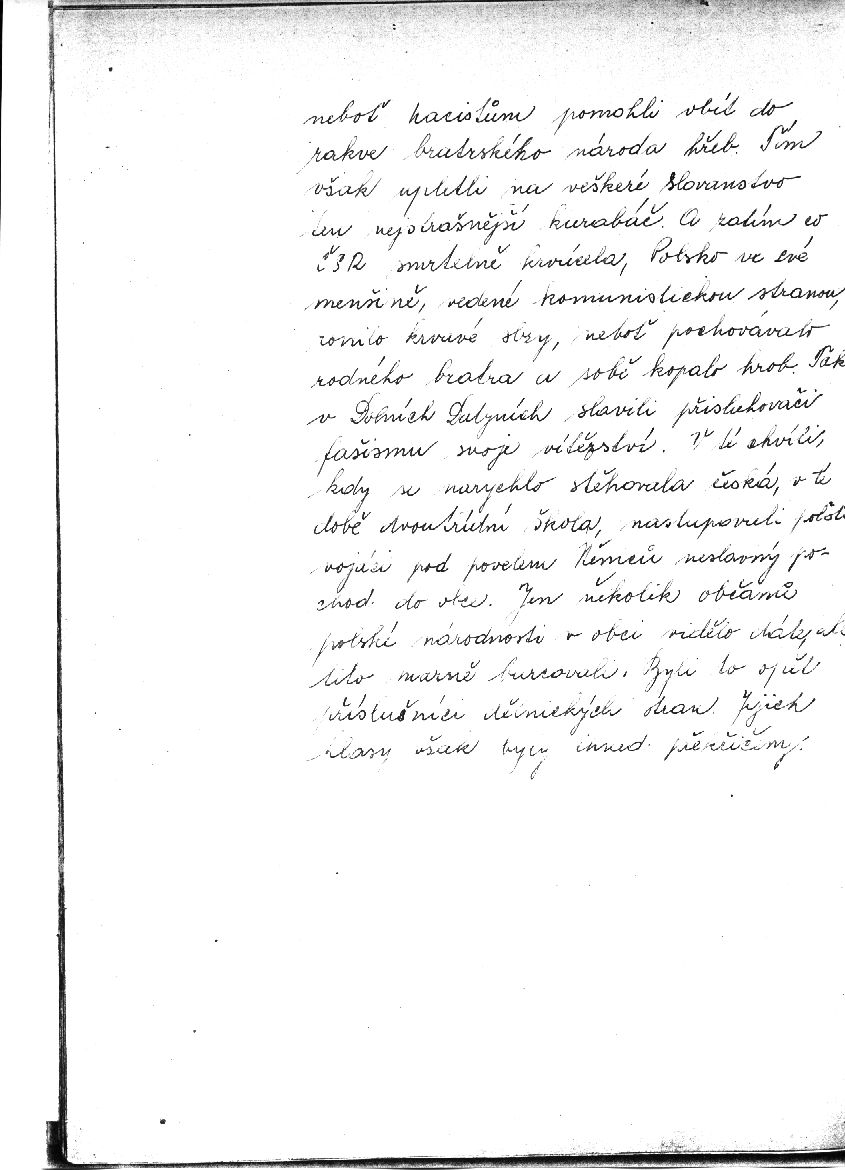 neboť nacistům pomohli vbít do
rakve bratrského národa hřeb. Tím
však upletli na veškeré slovanstvo
ten nejstrašnější karabáč. A zatím co
ČSR smrtelně krvácela, Polsko ve své
menšině, vedené komunistickou stranou,
ronilo krvavé slzy, neboť pochovávalo
rodného bratra a sobě kopalo hrob. Tak
v Dolních Datyních slavili přisluhovači
fašismu svoje vítězství. V té chvíli,
kdy se narychlo stěhovala česká, v té
době dvoutřídní škola, nastupovali polští
vojáci pod povelem Němců neslavný po-
chod do obce. Jen několik občanů
polské národnosti v obci vidělo dále, ale
tito marně burcovali. Byli to opět
příslušníci dělnických stran. Jejich
hlasy však byly ihned překřičeny.